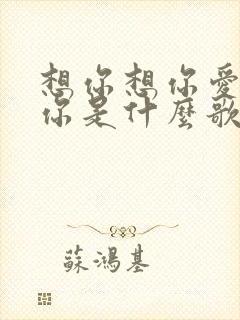 想你想你愛
你是什麼歌
蘇鴻基